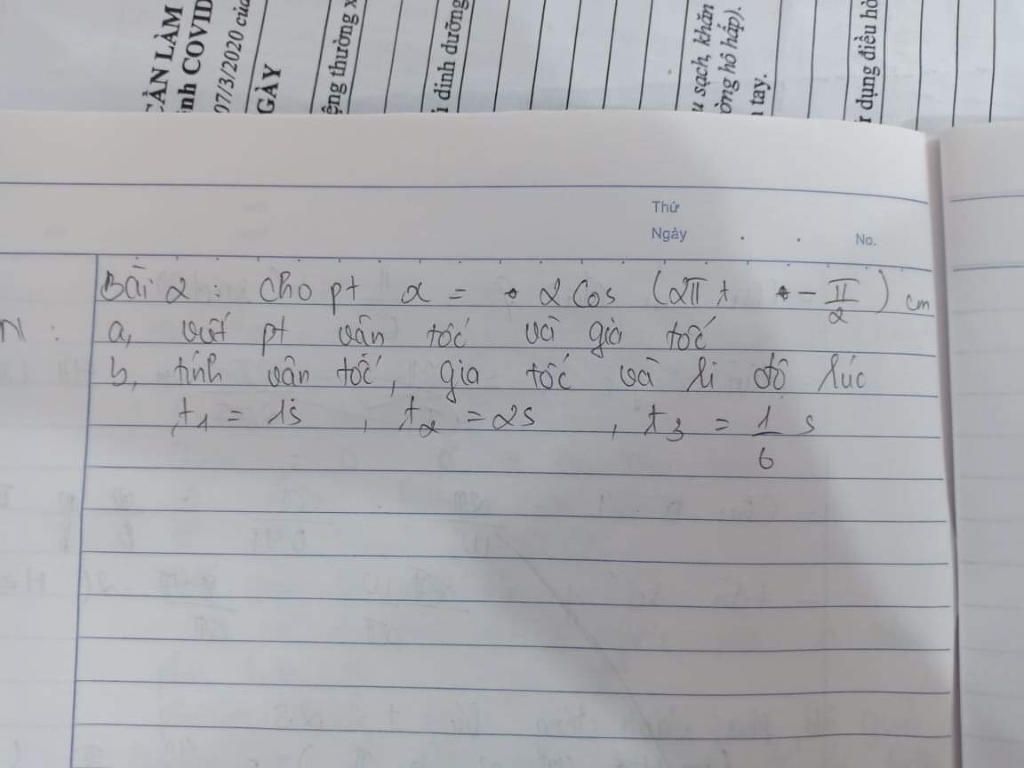 CẦN LÀM
nh COVID
07/3/2020 của
GÀY
ệng thường x
i dinh dưỡng
u sạch, khăn
ờng hô hấp).
tay.
dụng điều hò
Thứ
Ngày . . No.
N :
Bài 2 : Cho pt x = 2 cos (2π t - π/2) cm
a, viết pt vân tốc và gia tốc
b, tính vân tốc, gia tốc và li độ lúc
t1 = 1s , t2 = 2s , t3 = 1/6 s